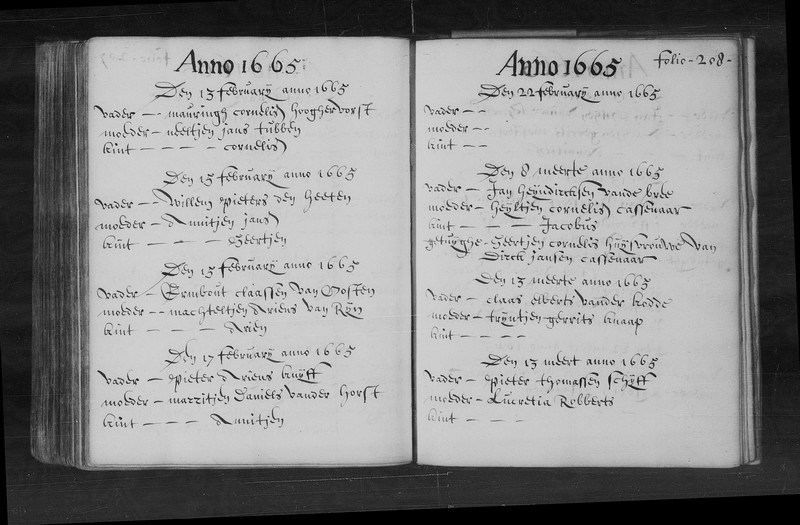 Anno 1665
Den 13 february anno 1665
vader — mauringh cornelis hooghervorst
moeder — neeltjen jans tubben
kint — — — cornelis
Den 15 february anno 1665
vader — Willem pieters den heeten
moeder — Annitjen jans
kint — — — Geertjen
Den 15 february anno 1665
vader — Ermbout claassen van Oosten
moeder — machteltjen Ariens van Rijn
kint — — — Arien
Den 17 february anno 1665
vader — pieter Ariens kuyff
moeder — marritjen Daniels vander horst
kint — — — Annitjen
Anno 1665
folio - 208 -
Den 22 february anno 1665
vader — —
moeder — —
kint — — —
Den 8 meerte anno 1665
vader — Jan heyndircksen vande bree
moeder — heyltjen cornelis cassenaar
kint — — — Jacobus
getuyghe - Geertjen cornelis huysvrouwe van
Dirck jansen cassenaar
Den 13 meerte anno 1665
vader — claas elberts vander hodde
moeder — tryntjen gerrits knaap
kint — — — —
Den 15 meert anno 1665
vader — pieter thomassen schijff
moeder — Lucretia Robberts
kint — — — —